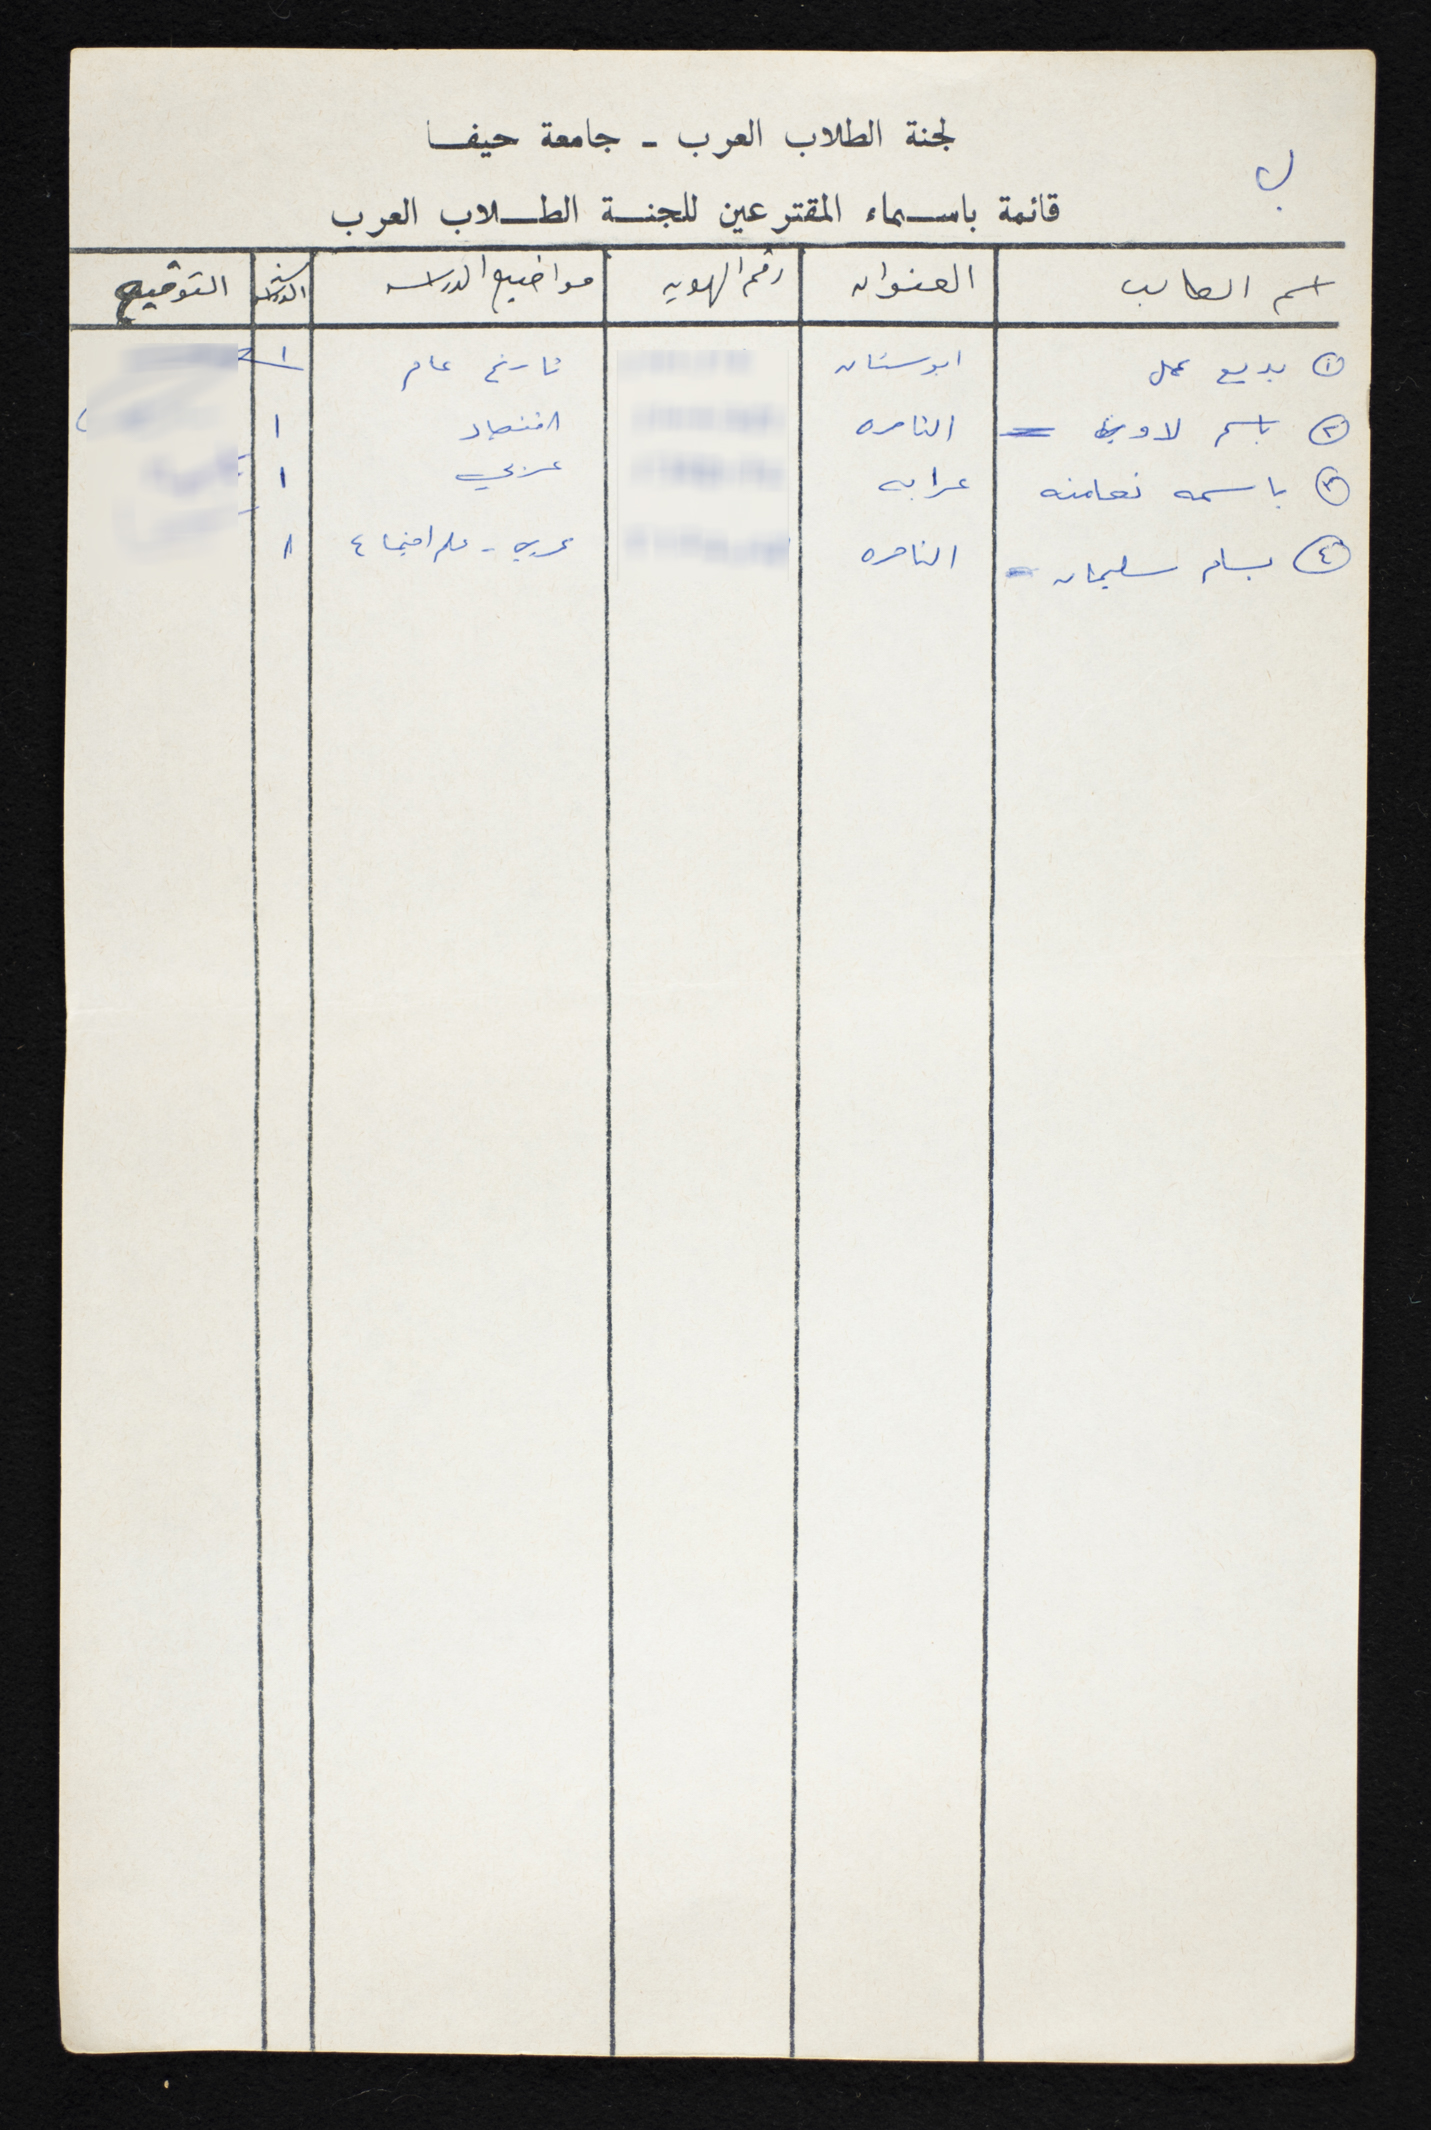 ب
لجنة الطلاب العرب - جامعة حيفا
قائمة باسماء المقترعين للجنة الطلاب العرب
اسم الطالب العنوان رقم الهويه مواضيع الدراسه سنة الدراسه التوقيع
١ بديع عمل ابو سنان تاريخ عام ١
٢ باسم لاوي الناصره اقتصاد ١
٣ باسمه نعامنه عرابه عربي ١
٤ بسام سليمان الناصره عربي - علم اجتماع ١